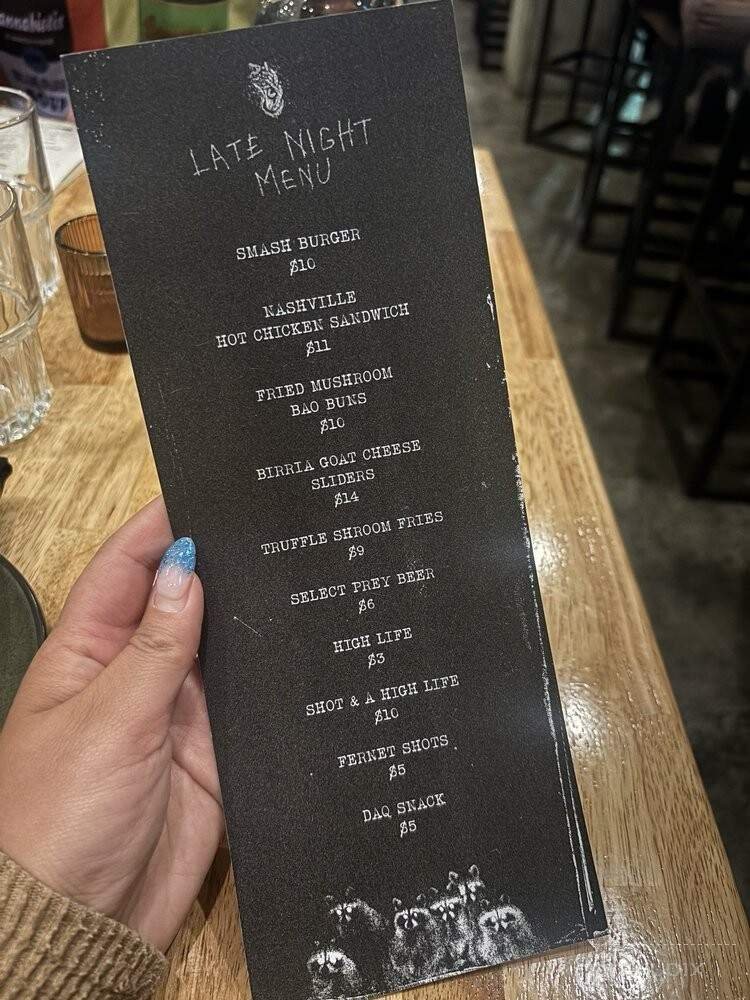 LATE NIGHT
MENU
SMASH BURGER
$10
NASHVILLE
HOT CHICKEN SANDWICH
$11
FRIED MUSHROOM
BAO BUNS
$10
BIRRIA GOAT CHEESE
SLIDERS
$14
TRUFFLE SHROOM FRIES
$9
SELECT PREY BEER
$6
HIGH LIFE
$3
SHOT & A HIGH LIFE
$10
FERNET SHOTS
$5
DAQ SNACK
$5